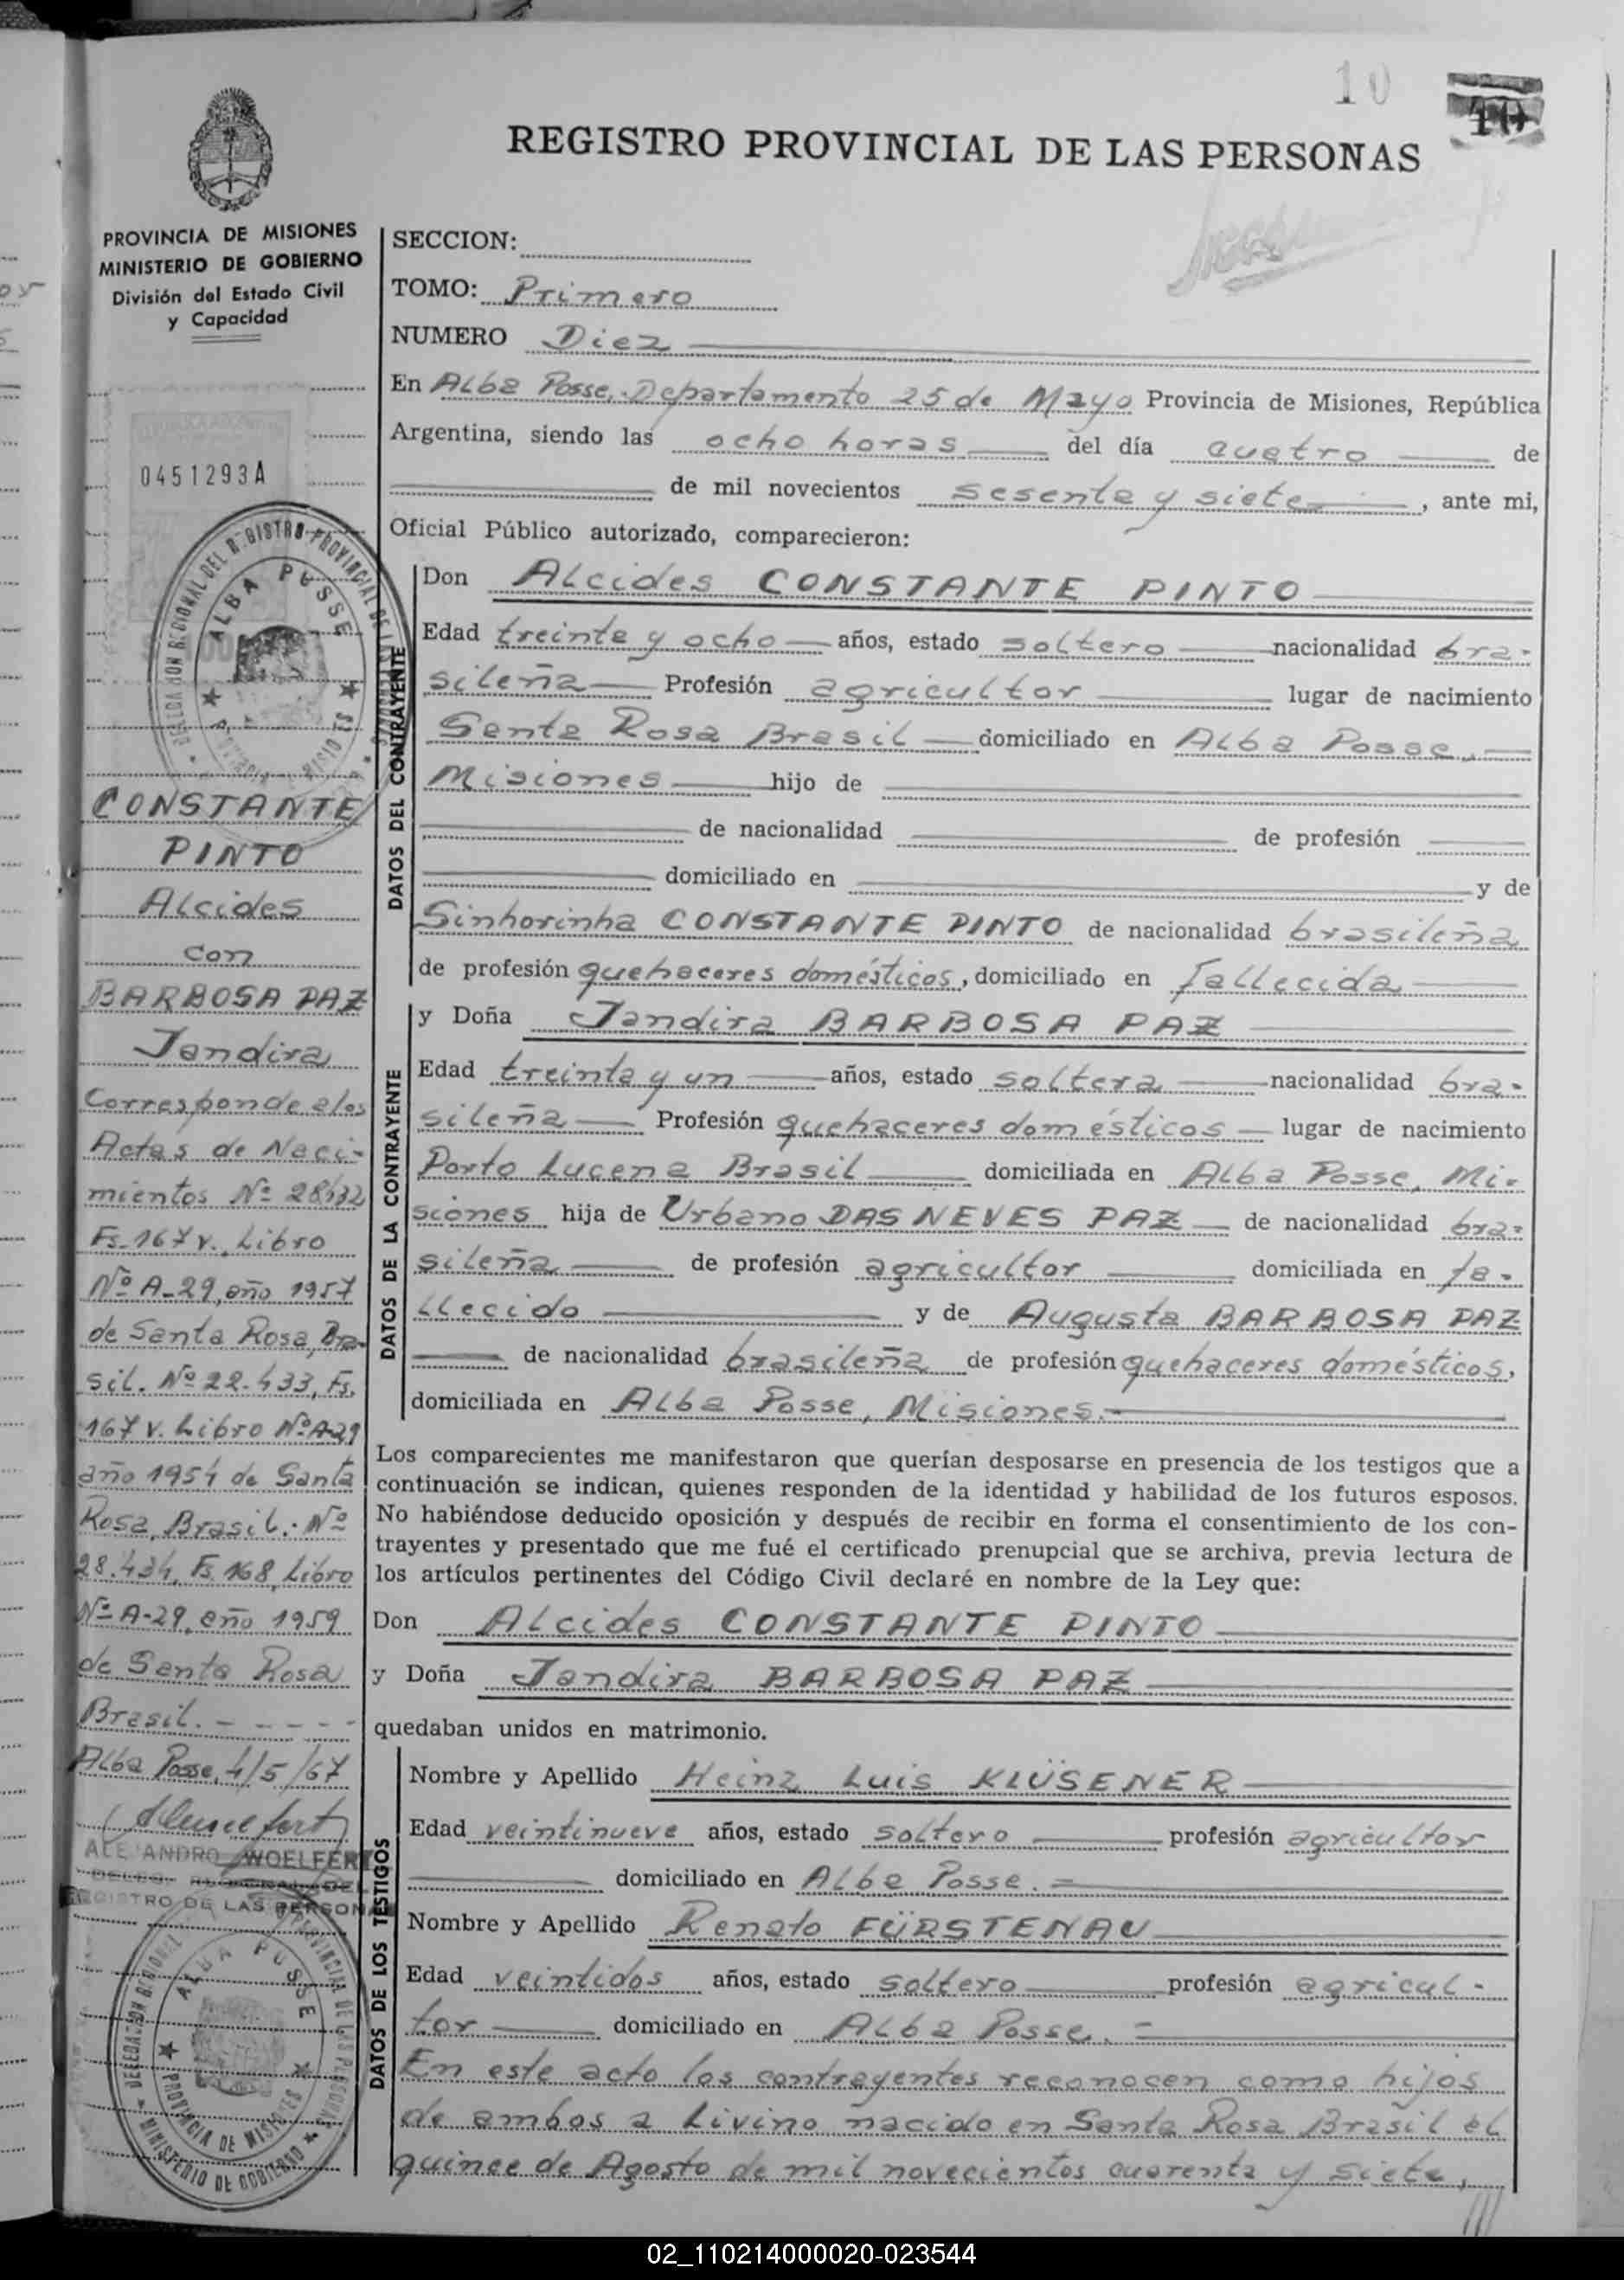 10
10
REGISTRO PROVINCIAL DE LAS PERSONAS
PROVINCIA DE MISIONES
MINISTERIO DE GOBIERNO
División del Estado Civil
y Capacidad
0451293A
ALBA POSSE
CONSTANTE
PINTO
Alcides
con
BARBOSA PAZ
Jandira
Corresponde a las
Actas de Naci-
mientos Nº 28432
Fs. 167 v., Libro
Nº A-29, año 1957
de Santa Rosa, Bra-
sil. Nº 22.433, Fs.
167 v. Libro Nº A-29
año 1954 de Santa
Rosa, Brasil.- Nº
28.434, Fs. 168, Libro
Nº A-29, año 1959
de Santa Rosa
Brasil. - - - - -
Alba Posse, 4/5/67
ALEJANDRO WOELFERT
REGISTRO DE LAS PERSONAS
ALBA POSSE
DELEGACION REGIONAL
PROVINCIA DE MISIONES
MINISTERIO DE GOBIERNO
SECCION:
TOMO: Primero
NUMERO Diez
En Alba Posse, Departamento 25 de Mayo Provincia de Misiones, República
Argentina, siendo las ocho horas del día cuatro de
de mil novecientos sesenta y siete, ante mi,
Oficial Público autorizado, comparecieron:
DATOS DEL CONTRAYENTE
Don Alcides CONSTANTE PINTO
Edad treinta y ocho años, estado soltero nacionalidad bra-
sileña Profesión agricultor lugar de nacimiento
Santa Rosa Brasil domiciliado en Alba Posse,
Misiones hijo de
de nacionalidad de profesión
domiciliado en y de
Sinhorinha CONSTANTE PINTO de nacionalidad brasileña
de profesión quehaceres domésticos, domiciliado en fallecida
DATOS DE LA CONTRAYENTE
y Doña Jandira BARBOSA PAZ
Edad treinta y un años, estado soltera nacionalidad bra-
sileña Profesión quehaceres domésticos lugar de nacimiento
Porto Lucena Brasil domiciliada en Alba Posse, Mi-
siones hija de Urbano DAS NEVES PAZ de nacionalidad bra-
sileña de profesión agricultor domiciliada en fa-
llecido y de Augusta BARBOSA PAZ
de nacionalidad brasileña de profesión quehaceres domésticos,
domiciliada en Alba Posse, Misiones.-
Los comparecientes me manifestaron que querían desposarse en presencia de los testigos que a
continuación se indican, quienes responden de la identidad y habilidad de los futuros esposos.
No habiéndose deducido oposición y después de recibir en forma el consentimiento de los con-
trayentes y presentado que me fué el certificado prenupcial que se archiva, previa lectura de
los artículos pertinentes del Código Civil declaré en nombre de la Ley que:
Don Alcides CONSTANTE PINTO
y Doña Jandira BARBOSA PAZ
quedaban unidos en matrimonio.
DATOS DE LOS TESTIGOS
Nombre y Apellido Heinz Luis KLÜSENER
Edad veintinueve años, estado soltero profesión agricultor
domiciliado en Alba Posse.=
Nombre y Apellido Renato FÜRSTENAU
Edad veintidos años, estado soltero profesión agricul-
tor domiciliado en Alba Posse.=
En este acto los contrayentes reconocen como hijos
de ambos a Livino nacido en Santa Rosa Brasil el
quince de Agosto de mil novecientos cuarenta y siete,
///
02_110214000020-023544